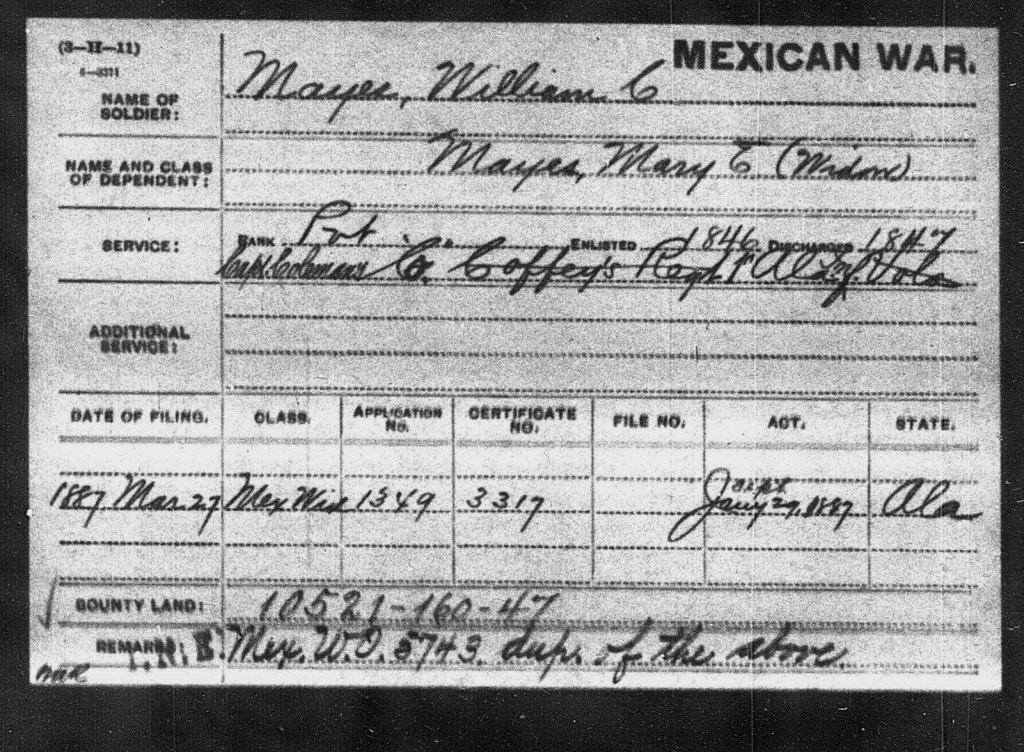 (3—H—11)
MEXICAN WAR.
NAME OF SOLDIER: Mayes, William C
NAME AND CLASS OF DEPENDENT: Mayes, Mary E (Widow)
SERVICE: RANK Pvt ENLISTED 1846. DISCHARGED 1847
Capt. Coleman's Co. "C" Coffey's Regt Ala Vols
ADDITIONAL SERVICE:
DATE OF FILING. CLASS. APPLICATION NO. CERTIFICATE NO. FILE NO. ACT. STATE.
1887 Mar. 27 Mex Wid 1349 3317 Jany 29, 1887 Ala
BOUNTY LAND: 10521-160-47
REMARKS: Mex. W.O. 5743 dup. of the above.